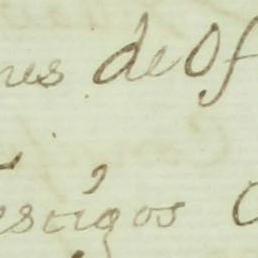 nes de Of
estigos